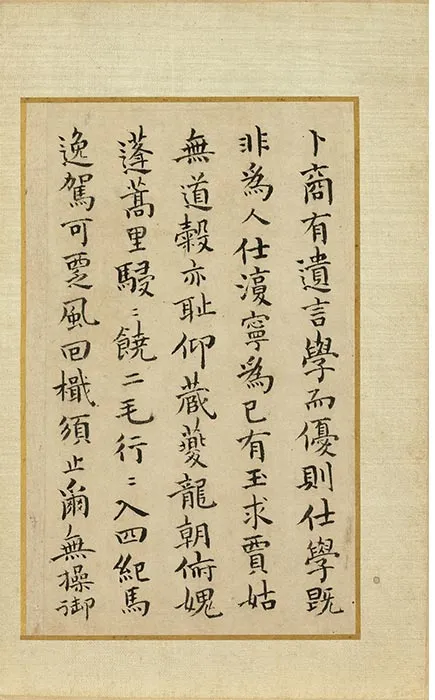 卜商有遺言學而優則仕學既
非爲人仕漘寧爲已有玉求賈姑
無道穀亦耻仰蔵夔龍朝俯媿
蓬蒿里駸〻饒二毛行〻入四紀馬
逸駕可覂風回檝須止爾無操御